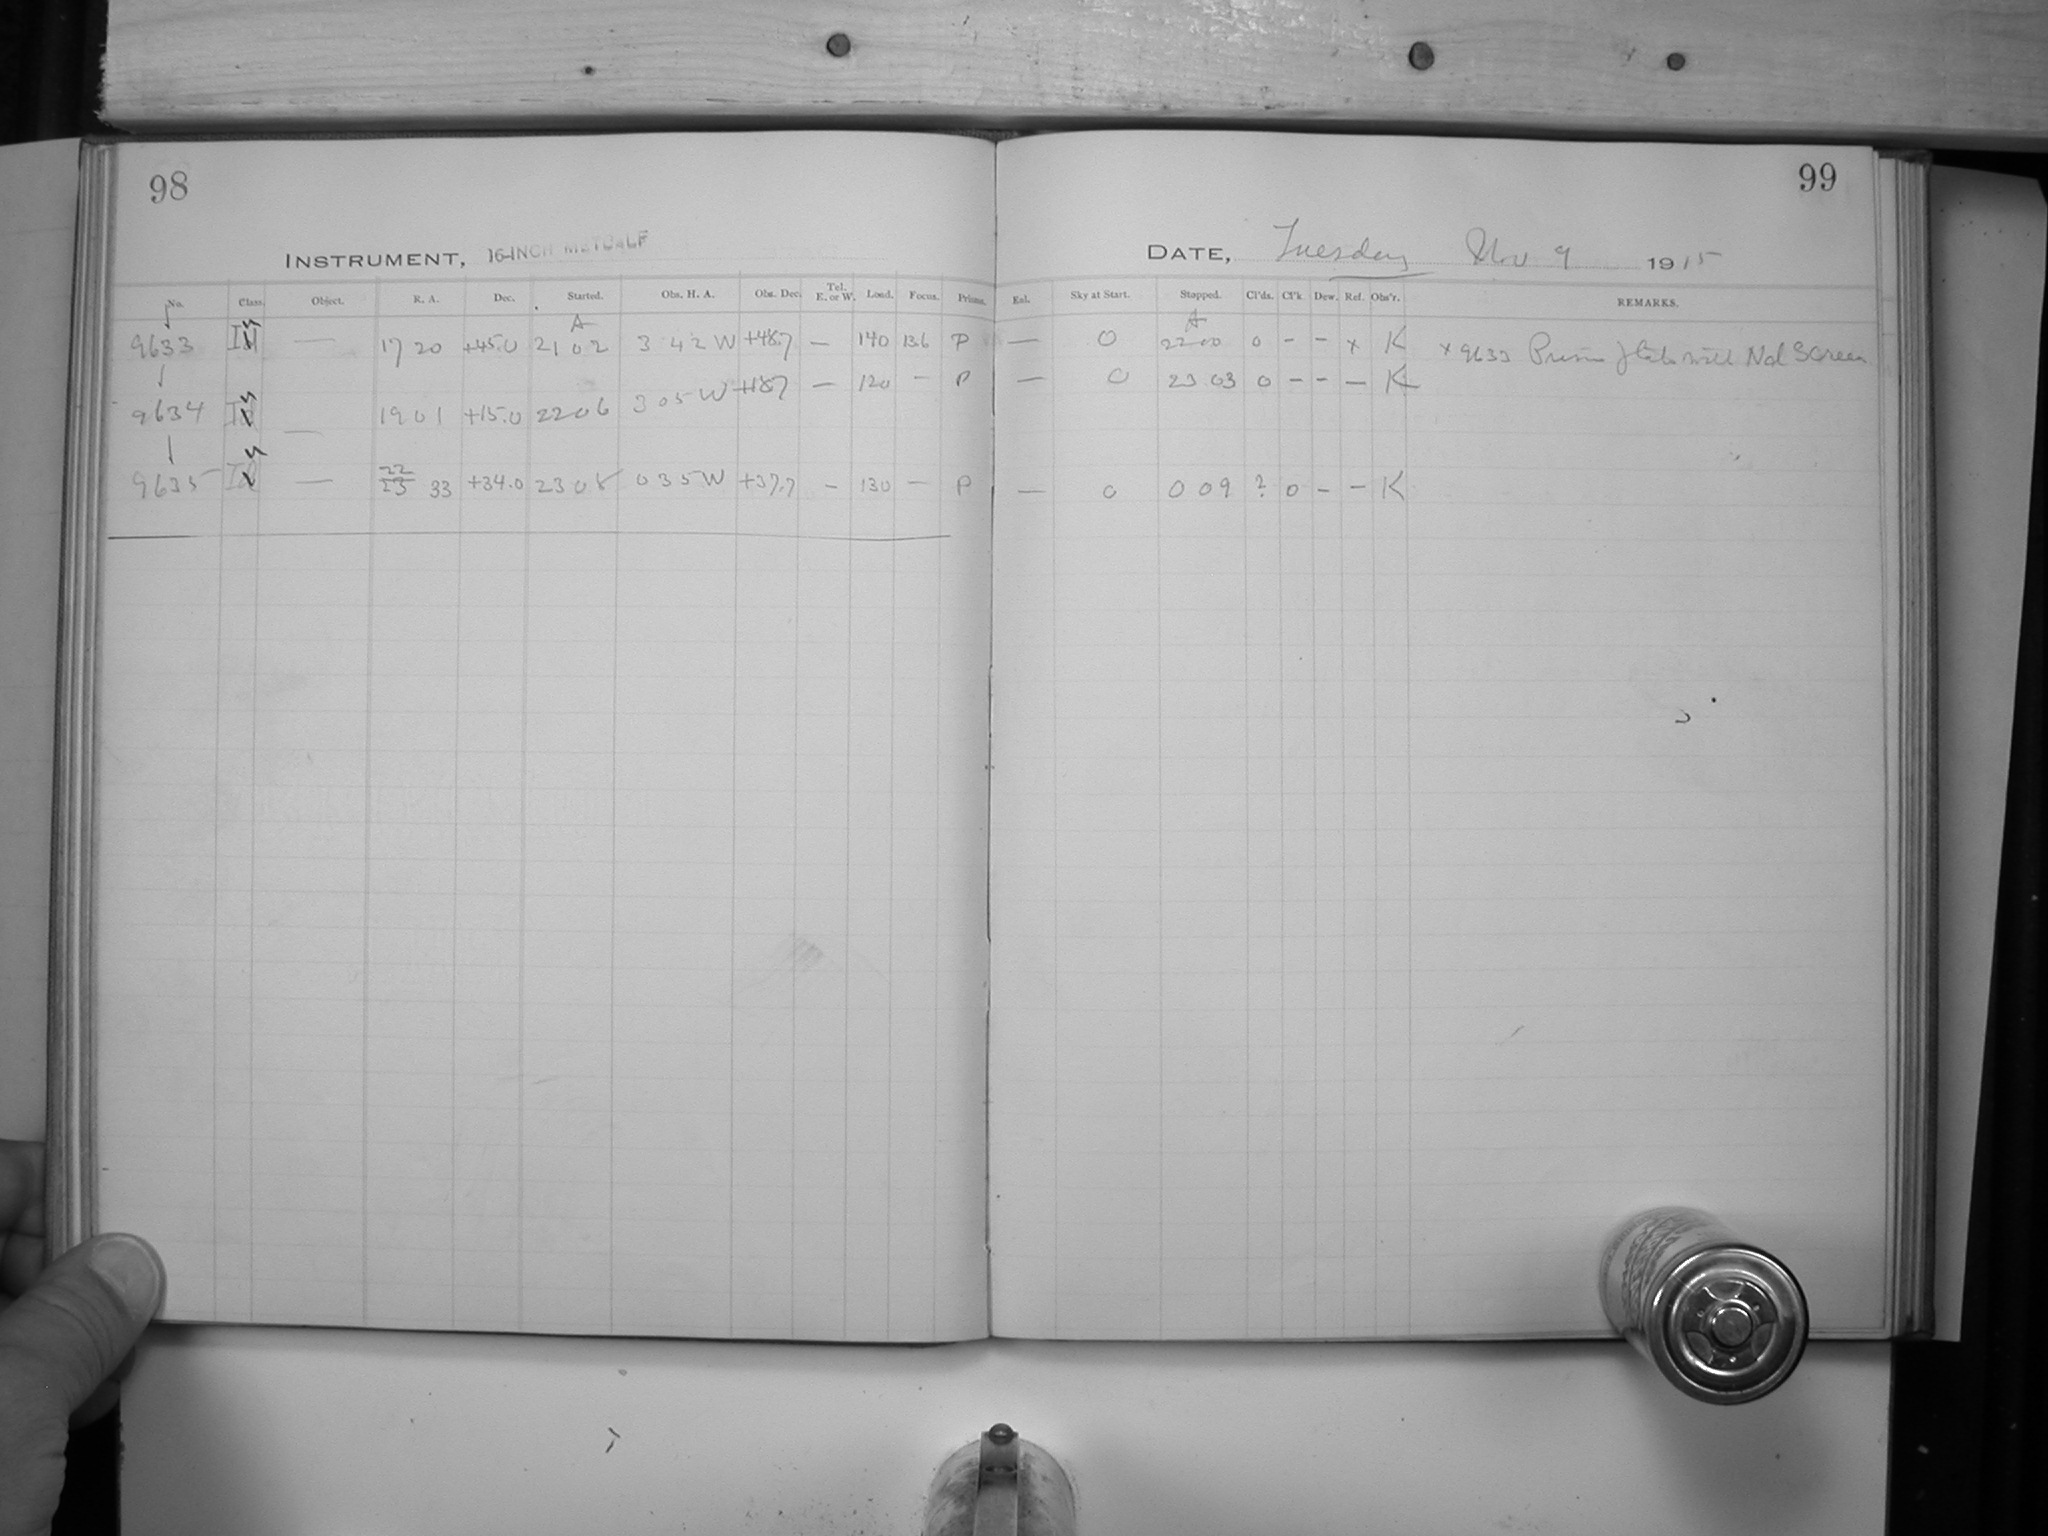 98
99
INSTRUMENT, 16-INCH METCALF
DATE, Tuesday Nov 9 1915
No. Class. Object. R. A. Dec. Started. Obs. H. A. Obs. Dec. Tel. E. or W. Load. Focus. Prisms. Eal. Sky at Start. Stopped. Cl'ds. Cl'k Dew. Ref. Obs'r. REMARKS.
A A
9633 — 17 20 +45.0 21 02 3 42 W +48.7 — 140 13.6 P — 0 22 00 0 – – x K x 9633 with Nd Screen
9634 — 19 01 +15.0 22 06 3 05 W +18.7 — 120 – P — 0 23 03 0 – – – K
9635 — 22 23 33 +34.0 23 08 0 35 W +37.7 – 130 – P — 0 0 09 ? 0 – – K